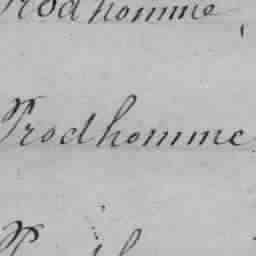 Prodhomme
Prodhomme